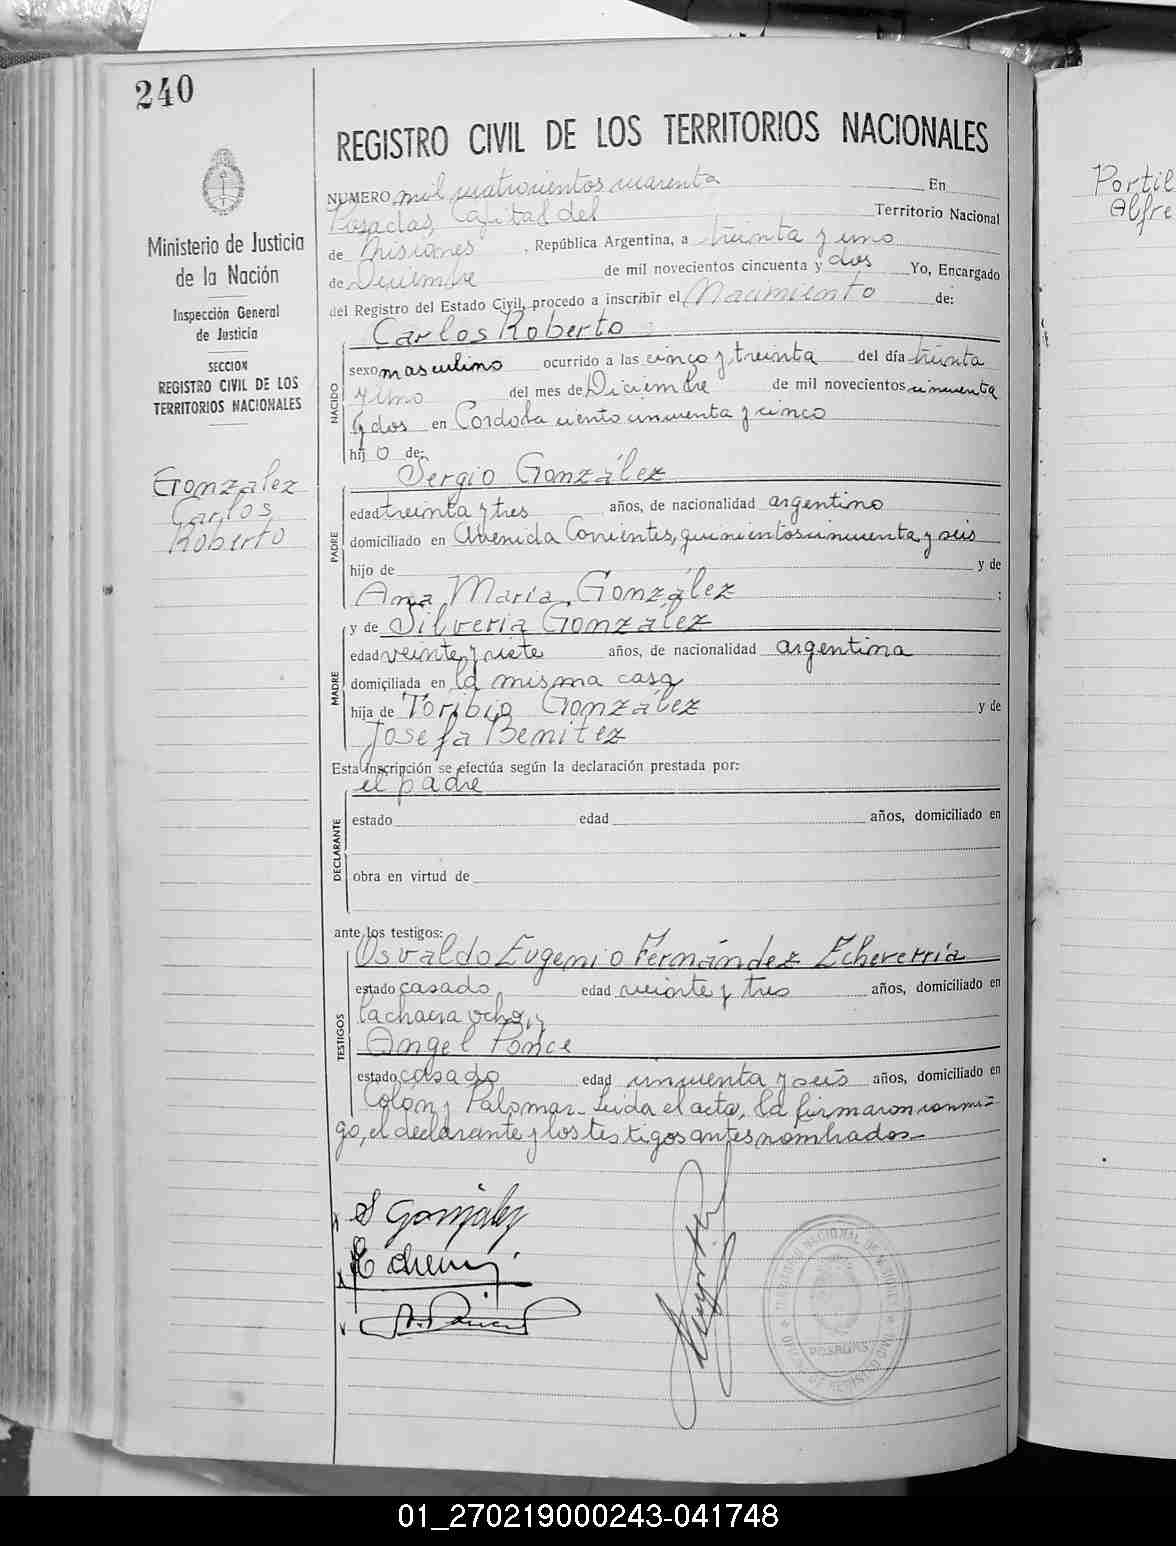 240
REGISTRO CIVIL DE LOS TERRITORIOS NACIONALES
NUMERO mil cuatrocientos cuarenta En
Posadas, Capital del Territorio Nacional
de Misiones, República Argentina, a treinta y uno
de Diciembre de mil novecientos cincuenta y dos Yo, Encargado
del Registro del Estado Civil, procedo a inscribir el Nacimiento de:
Ministerio de Justicia
de la Nación
Inspección General
de Justicia
SECCION
REGISTRO CIVIL DE LOS
TERRITORIOS NACIONALES
Gonzalez
Carlos
Roberto
NACIDO
Carlos Roberto
sexo masculino ocurrido a las cinco y treinta del día treinta
y uno del mes de Diciembre de mil novecientos cincuenta
y dos en Córdoba ciento cincuenta y cinco
hijo de:
PADRE
Sergio González
edad treinta y tres años, de nacionalidad argentino
domiciliado en Avenida Corrientes, quinientos cincuenta y seis
hijo de y de
Ana María González ;
MADRE
y de Silveria González
edad veinte y siete años, de nacionalidad argentina
domiciliada en la misma casa
hija de Toribio González y de
Josefa Benitez
Esta inscripción se efectúa según la declaración prestada por:
el padre
DECLARANTE
estado edad años, domiciliado en
obra en virtud de
ante los testigos:
TESTIGOS
Osvaldo Eugenio Fernández Echeverría
estado casado edad veinte y tres años, domiciliado en
la chacra ocho, y
Angel Ponce
estado casado edad cincuenta y seis años, domiciliado en
Colon y Palomar. Leida el acta, la firmaron conmi=
go, el declarante y los testigos antes nombrados
S González
POSADAS
Portil
Alfre
01_270219000243-041748